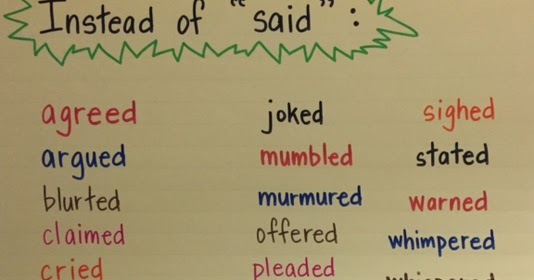 Instead of "said":
agreed joked sighed
argued mumbled stated
blurted murmured warned
claimed offered whimpered
cried pleaded